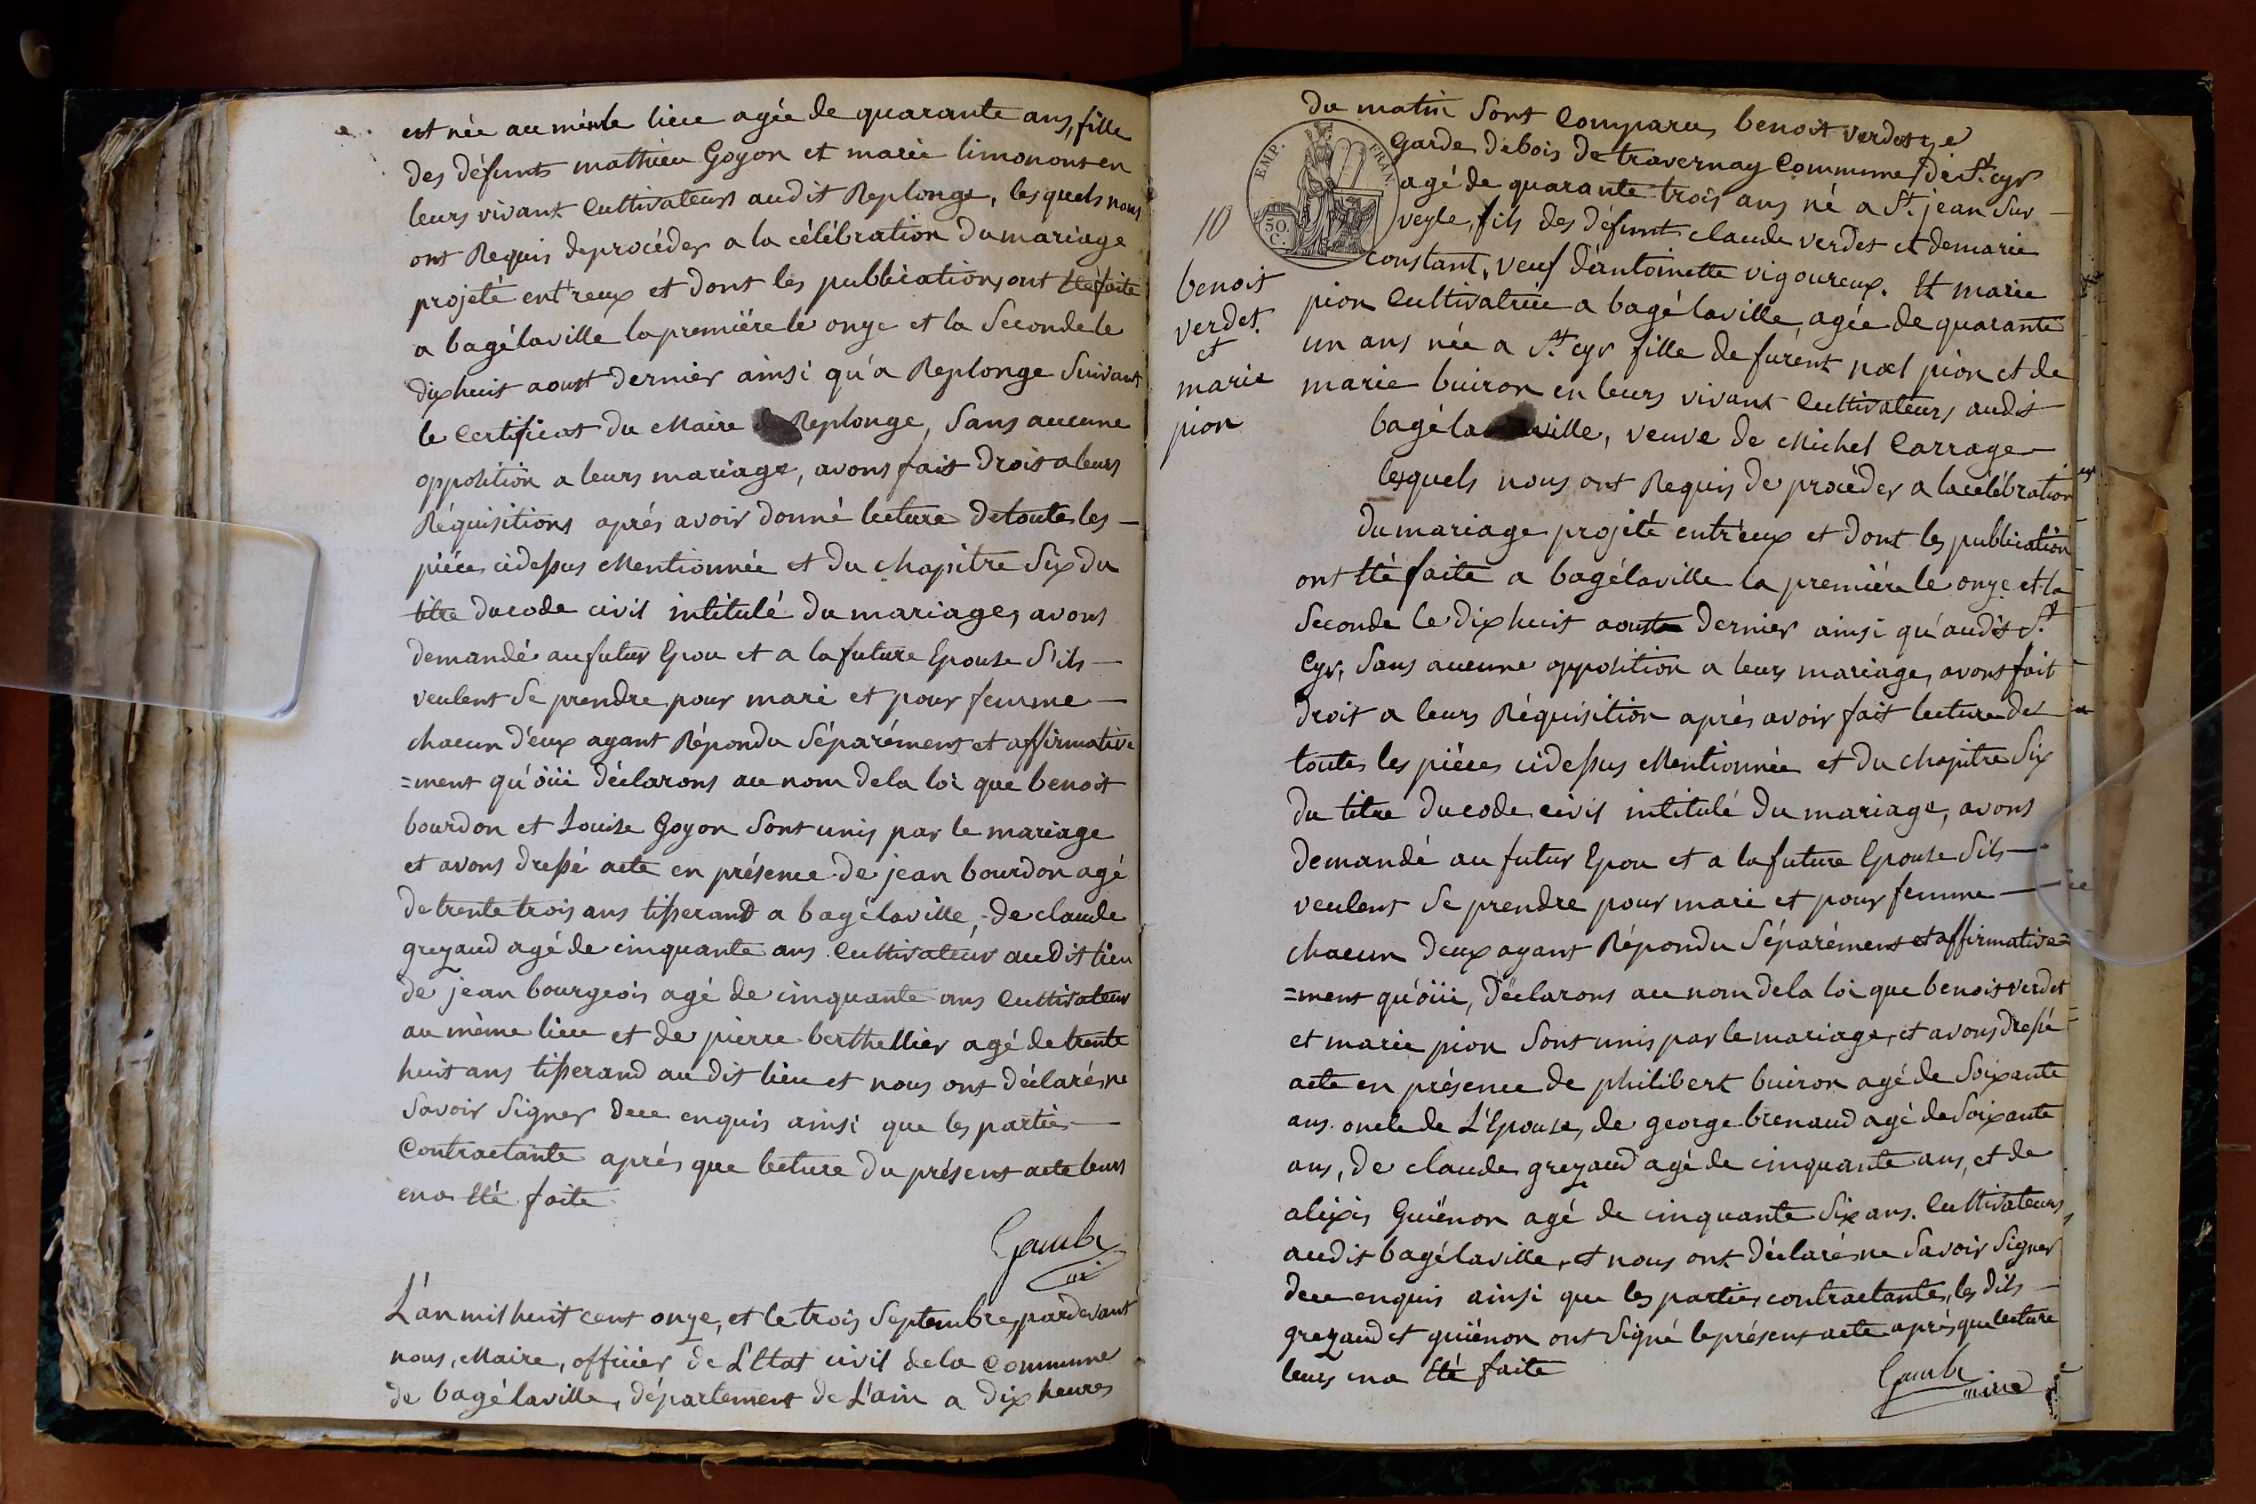 est née au même lieu agée de quarante ans, fille
des défunts mathieu Goyon et marie limonont en
leurs vivant Cultivateurs audit Replonge, les quels nous
ont Requis de procéder a la célébration du mariage
projeté entr'eux et dont les publications ont été faite
a bagélaville la premiere le onze et la Seconde le
dix huit aoust dernier ainsi qu'a Replonge Suivant
le Certificat du Maire de Replonge, Sans aucune
opposition a leurs mariage, avons fait droit a leurs
Réquisitions aprés avoir donné lecture de toute les
piéce cidessus Mentionnée et du chapitre Six du
titre du code civil intitulé du mariage, avons
demandé au futur Epou et a la future Epouse S'ils
veulent Se prendre pour mari et pour femme
chacun d'eux ayant Répondu Séparément et affirmative
=ment qu'oüi déclarons au nom de la loi que benoit
bourdon et Louise Goyon Sont unis par le mariage
et avons dressé acte en présence de jean bourdon agé
de trente trois ans tisserand a bagélaville, de claude
greyaud agé de cinquante ans Cultivateur audit lieu
de jean bourgeois agé de cinquante ans Cultivateur
au même lieu et de pierre berthellier agé de trente
huit ans tisserand au dit lieu et nous ont déclaré ne
Savoir Signer de ce enquis ainsi que les parties
Contractante aprés que lecture du présent acte leurs
en a été faite
Gambe
L'an mil huit cent onze, et le trois Septembre, pardevant
nous, Maire, officier de L'Etat civil de la Commune
de bagélaville, département de L'ain a dix heures
du matin Sont Comparu benoit verdet
Garde de bois de travernay Commune de St. cyr
agé de quarante trois ans né a St. jean Sur
veyle, fils des défunt claude verdet et de marie
constant, veuf d'antoinette vigoureux. Et marie
pion Cultivatrice a bagélaville, agée de quarante
un ans née a St. cyr fille de furent noel pion et de
marie buiron en leurs vivant Cultivateurs audit
bagélaville, veuve de Michel Carrage
lesquels nous ont Requis de procéder a la célébration
du mariage projeté entr'eux et dont les publication
ont été faite a bagélaville la premiére le onze et la
Seconde le dix huit aoust dernier ainsi qu'audit St.
Cyr, Sans aucune opposition a leurs mariage, avons fait
droit a leurs Réquisition aprés avoir fait lecture de
toutes les piéces cidessus Mentionnée et du chapitre Six
du titre du code civil intitulé du mariage, avons
demandé au futur Epou et a la future Epouse S'ils
veulent Se prendre pour mari et pour femme
chacun deux ayant Répondu Séparément et affirmative=
=ment qu'oüi, déclarons au nom de la loi que benoit verdet
et marie pion Sont unis par le mariage, et avons dressé
acte en présence de philibert buiron agé de Soixante
ans oncle de L'Epouse, de george brenaud agé de Soixante
ans, de claude greyaud agé de cinquante ans, et de
alexis Guënon agé de cinquante Six ans. Cultivateurs
audit bagélaville, et nous ont déclaré ne Savoir Signer
de ce enquis ainsi que les parties contractante, les dits
greyaud et guënon ont Signé le présent acte aprés que lecture
leurs en a été faite
Gambe
maire
10
benoit
verdet
et
marie
pion
EMP. FRAN.
50
C.